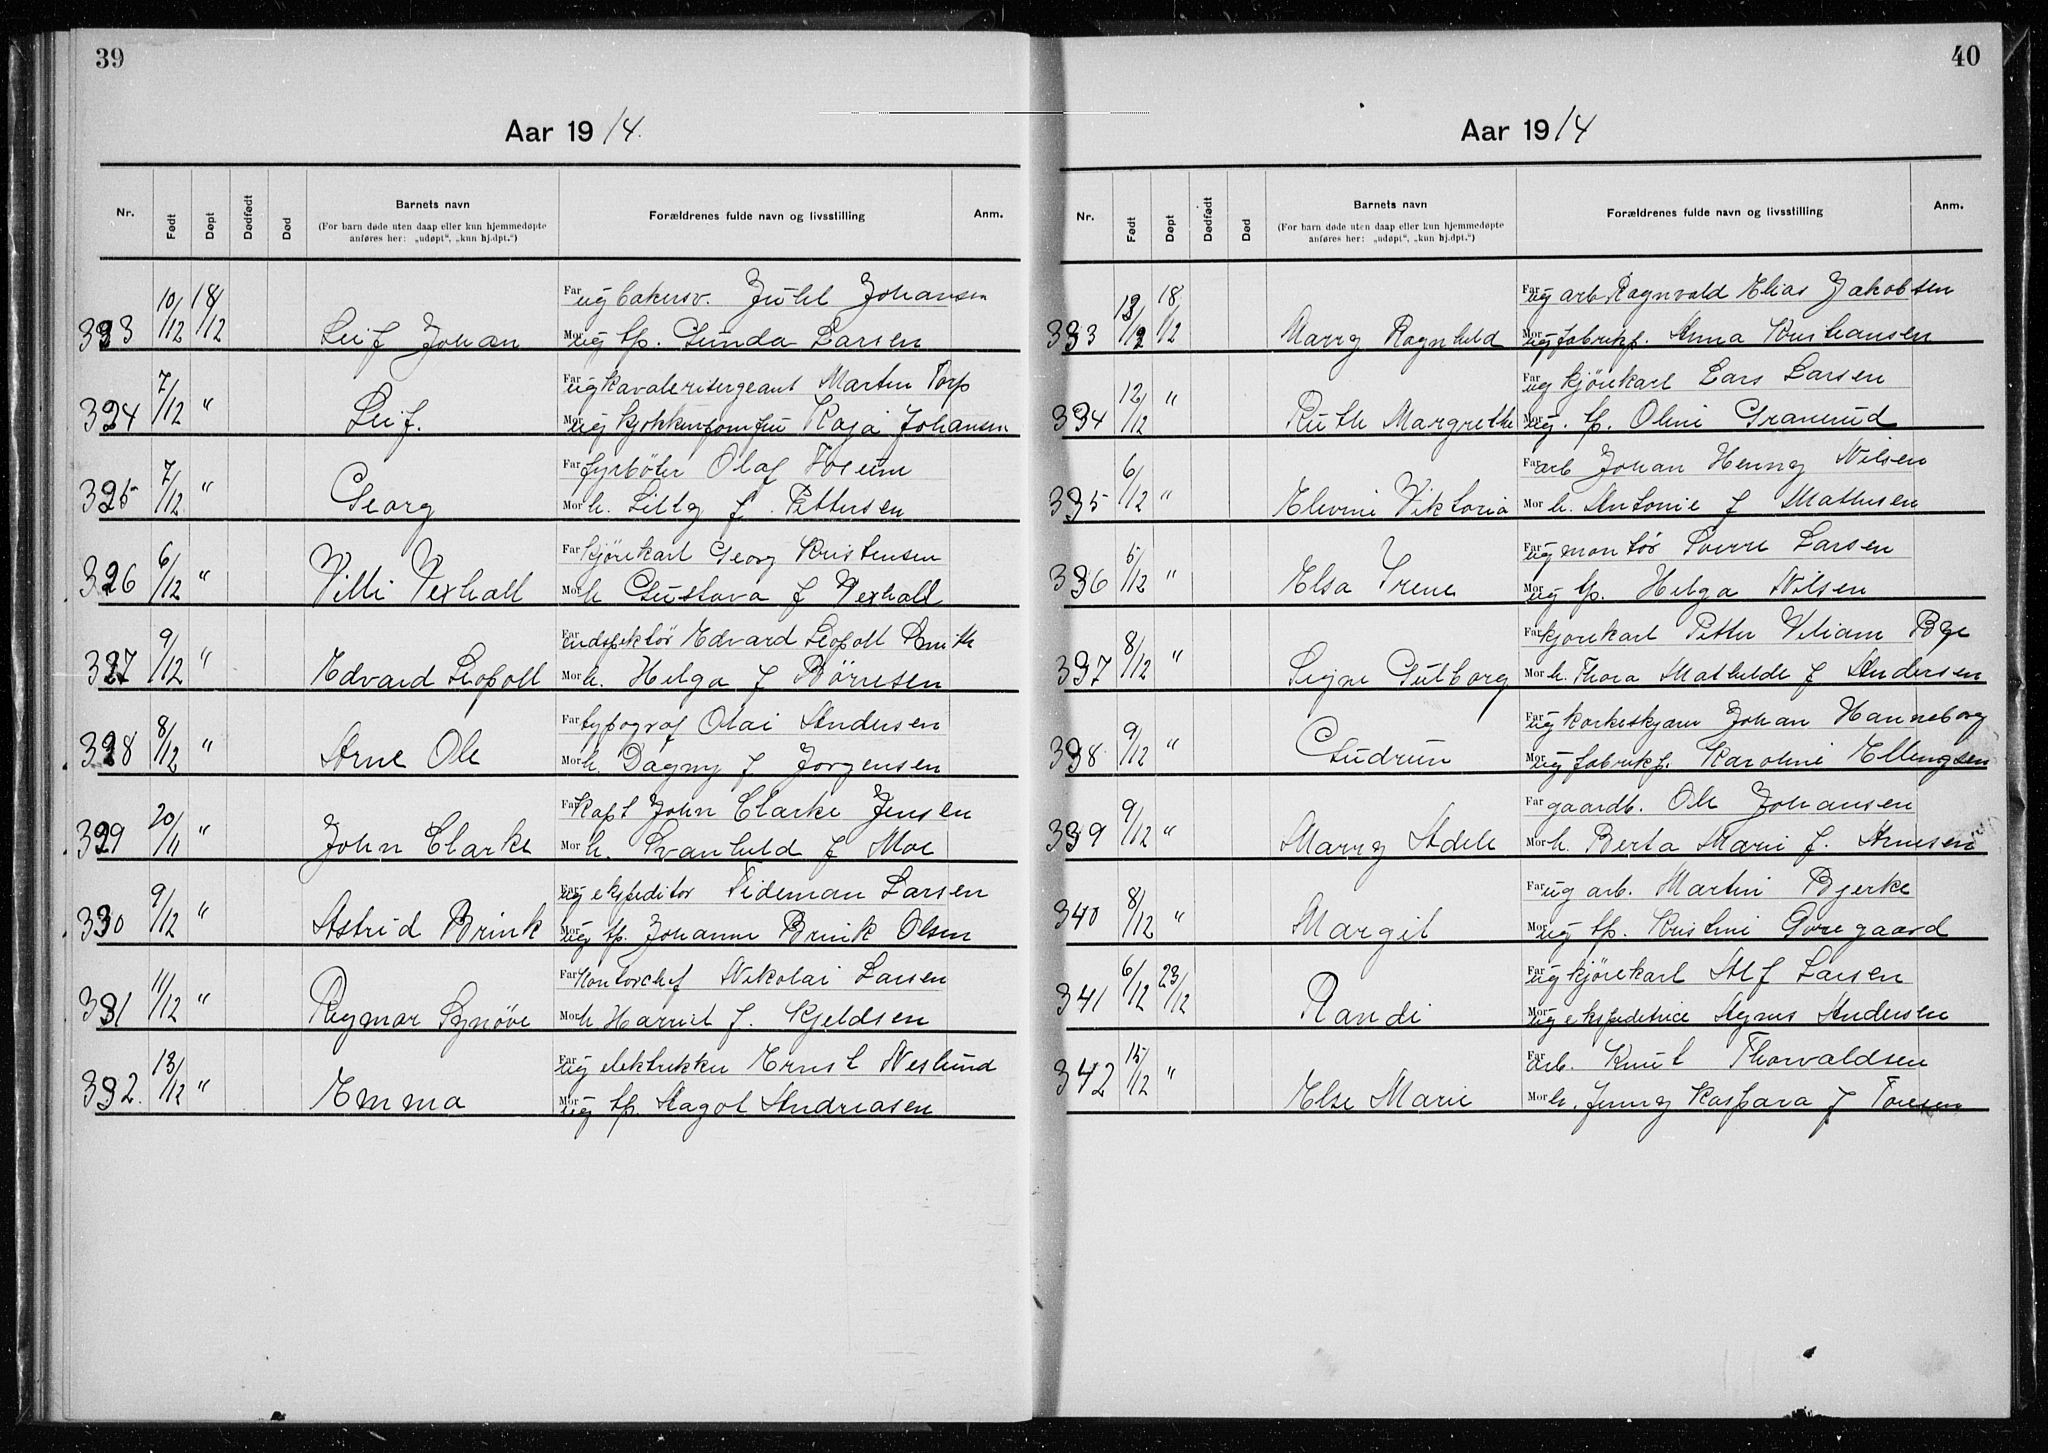 39
Aar 1914.
Nr. Født Døpt Dødfødt Død Barnets navn Forældrenes fulde navn og livsstilling Anm.
(For barn døde uten daap eller kun hjemmedøpte
anføres her: „udøpt“, „kun hj.dpt.“)
Far ug bakersv. Juhl Johansen
323 10/12 18/12 Leif Johan Mor ug tp. Gunda Larsen
Far ug kavalerisergeant Martin Torp
324 7/12 " Leif. Mor ug kjøkkenjomfru Kaja Johansen
Far fyrbøter Olaf
325 7/12 " Georg Mor h. Lilly f. Pettersen
Far kjørekarl Georg Kristensen
326 6/12 " Villi Vexhall Mor h Gustava f Vexhall
Far inspektør Edvard Leopolt Smith
327 9/12 " Edvard Leopolt Mor h. Helga f Børresen
Far typograf Olai Andersen
328 8/12 " Arne Ole Mor h. Dagny f Jørgensen
Far Kapt John Clarke Jensen
329 20/11 " John Clarke Mor h. Svanhild f Moe
Far ug ekspeditør Tideman Larsen
330 9/12 " Astrid Brink Mor ug tp. Johanne Brink Olsen
Far Kontorchef Nikolai Larsen
331 11/12 " Regmor Synøve Mor h Harriet f. Kjeldsen
Far ug elektriker Ernst Neslund
332. 13/12 " Emma Mor ug tp Aagot Andreasen
40
Aar 1914
Nr. Født Døpt Dødfødt Død Barnets navn Forældrenes fulde navn og livsstilling Anm.
(For barn døde uten daap eller kun hjemmedøpte
anføres her: „udøpt“, „kun hj.dpt.“)
Far ug arb Ragnvald Elias Jakobsen
333 13/12 18/12 Marry Ragnhild Mor ug fabrikp. Anna Kristiansen
Far ug kjørekarl Lars Larsen
334 12/12 " Ruth Margrethe Mor ug. tp. Oline Granerud
Far arb Johan Henry Nilsen
335 6/12 " Elvine Viktoria Mor h. Antonie f Mathisen
Far ug montør Sverre Larsen
336 5/12 " Elsa Irene Mor ug tp. Helga Nilsen
Far kjørekarl Petter Viliam Bye
337 8/12 " Signe Gulborg Mor h. Thora Mathilde f Andersen
Far ug korkeskjærer Johan Hanneborg
338 9/12 " Gudrun Mor ug fabrikp. Karoline Ellingsen
Far gaardb. Ole Johansen
339 9/12 " Marry Adele Mor h. Berta Marie f. Arnesen
Far ug arb. Martin Bjerke
340 8/12 " Margit Mor ug tp. Kristine Goregaard
Far ug kjørekarl Alf Larsen
341 6/12 23/12 Randi Mor ug ekspeditrice Agnes Andersen
Far arb. Knut Thorvaldsen
342 15/12 " Else Marie Mor h. Jenny Kaspara f Toresen